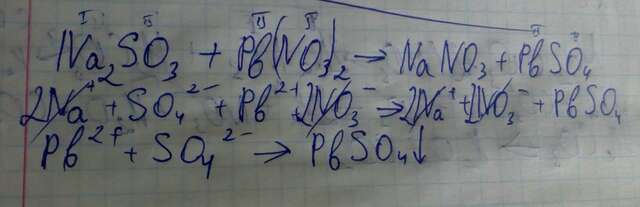 I II II I II II
Na₂SO₃ + Pb(NO₃)₂ → NaNO₃ + PbSO₄
2Na⁺ + SO₄²⁻ + Pb²⁺ + 2NO₃⁻ → 2Na⁺ + 2NO₃⁻ + PbSO₄
Pb²⁺ + SO₄²⁻ → PbSO₄↓